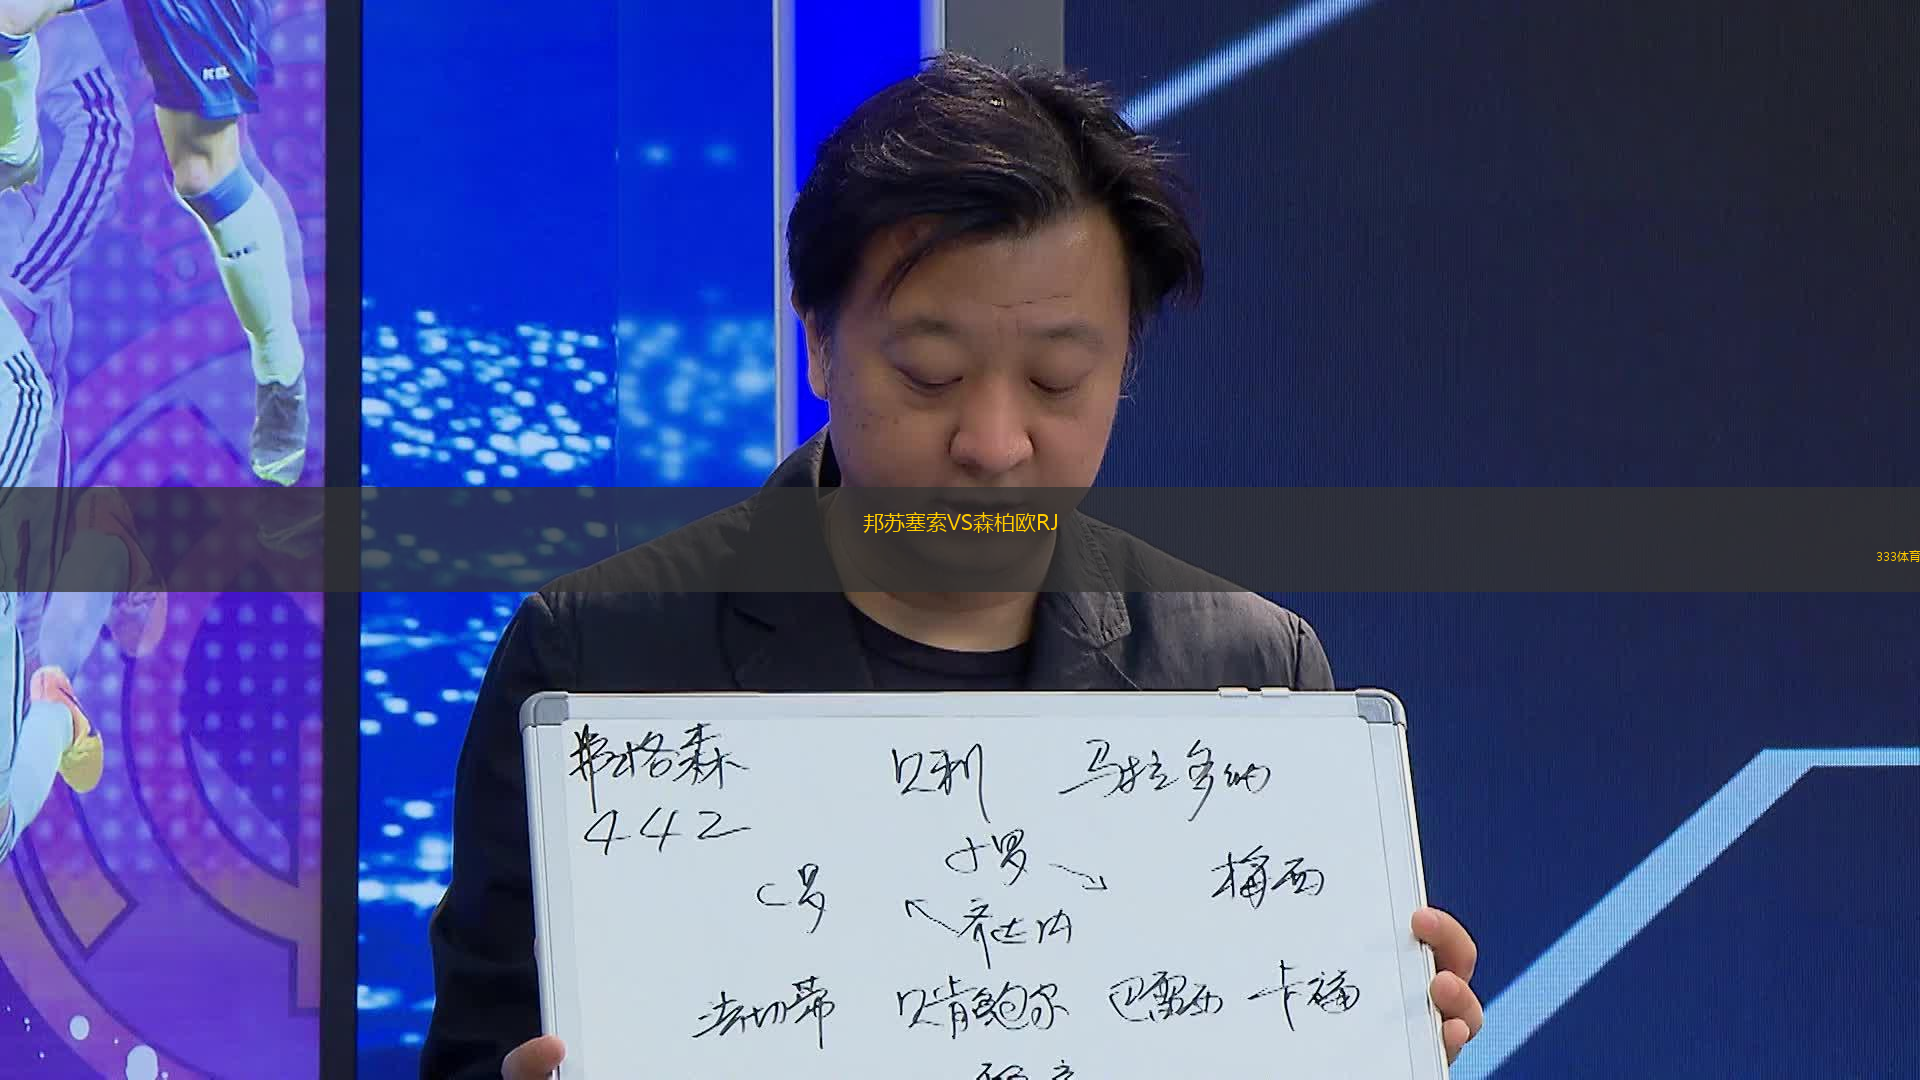 KEL
邦苏塞索VS森柏欧RJ
333体育
弗格森 贝利 马拉多纳
442
小罗
C罗 梅西
齐达内
法切蒂 贝肯鲍尔 巴雷西 卡福